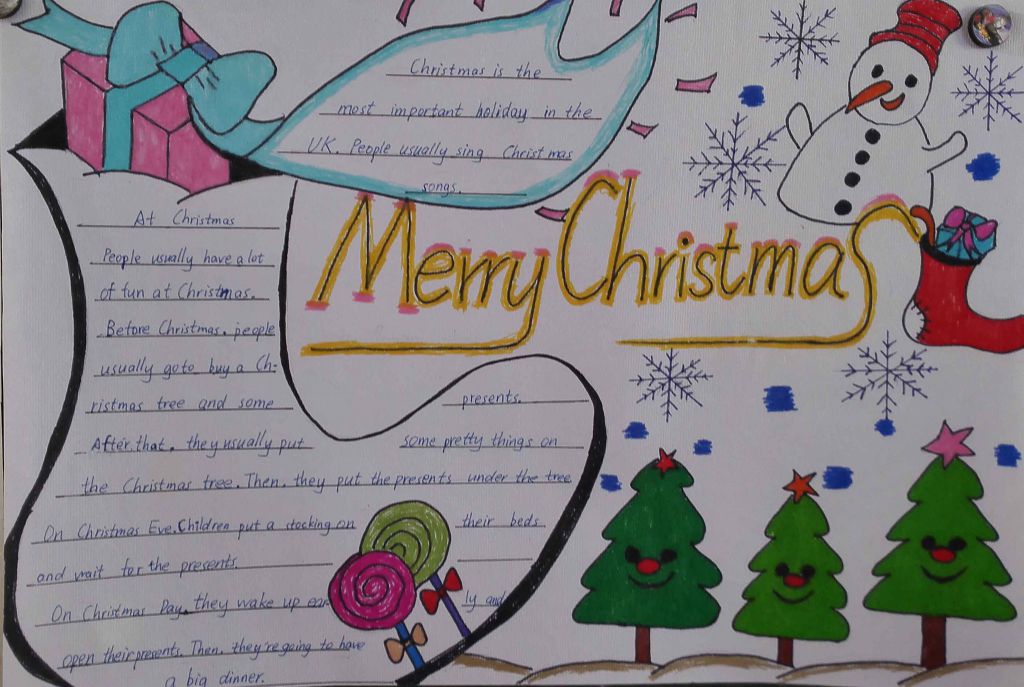 Christmas is the
most important holiday in the
UK. People usually sing Christmas
songs.
Merry Christmas
At Christmas
People usually have a lot
of fun at Christmas.
Before Christmas, people
usually go to buy a Ch-
ristmas tree and some presents.
After that, they usually put some pretty things on
the Christmas tree. Then, they put the presents under the tree
On Christmas Eve. Children put a stocking on their beds
and wait for the presents.
On Christmas Day, they wake up ear ly and
open their presents. Then, they're going to have
a big dinner.